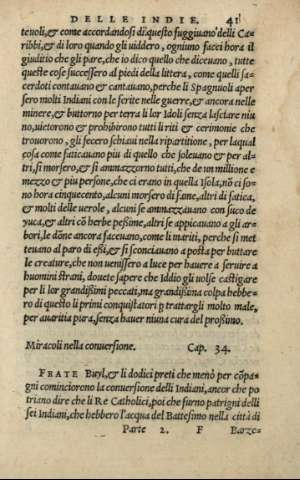 DELLE INDIE. 41
teuoli,& come accordandosi di questo fuggiuano delli Ca-
ribbi,& di loro quando gli uiddero, ogniuno facci hora il
giuditio che gli pare, che io dico quello che diceuano, tutte
queste cose successero al piedi della littera, come quelli sa-
cerdoti contauano & cantauano, perche li Spagnuoli aper
sero molti Indiani con le ferite nelle guerre,& ancora nelle
minere,& buttorno per terra li lor Idoli senza lasciare niu
no, uietorono & prohibirono tutti li riti & cerimonie che
trouorono, gli fecero schiaui nella ripartitione, per laqual
cosa come faticauano piu di quello che soleuano & per al-
tri, si morsero,& si ammazzorno tutti, che de un millione e
mezzo & piu persone, che ci erano in quella Isola, nō ci so-
no hora cinquecento, alcuni morsero di fame, altri di fatica,
& molti delle uerole, alcuni se ammazzauano con suco de
yuca,& altri cō herbe pessime, altri se appicauano a gli ar-
bori, le dōne ancora faceuano, come li mariti, perche si met
teuano al paro di essi,& si sconciauano a posta per buttare
le creature, che non uenissero a luce per hauere a seruire a
huomini strani, douete sapere che Iddio gli uolse castigare
per li lor grandissimi peccati, ma grandissima colpa hebbe-
ro di questo li primi conquistatori p trattargli molto male,
per auaritia piura, senza hauer niuna cura del prossimo.
Miracoli nella conuersione. Cap. 34.
FRATE Buyl,& li dodici preti che menò per cōpa-
gni cominciorono la conuersione delli Indiani, ancor che po
triano dire che li Re Catholici, poi che furno patrigni delli
sei Indiani, che hebbero l'acqua del Battesimo nella città di
Parte 2. F Barze-